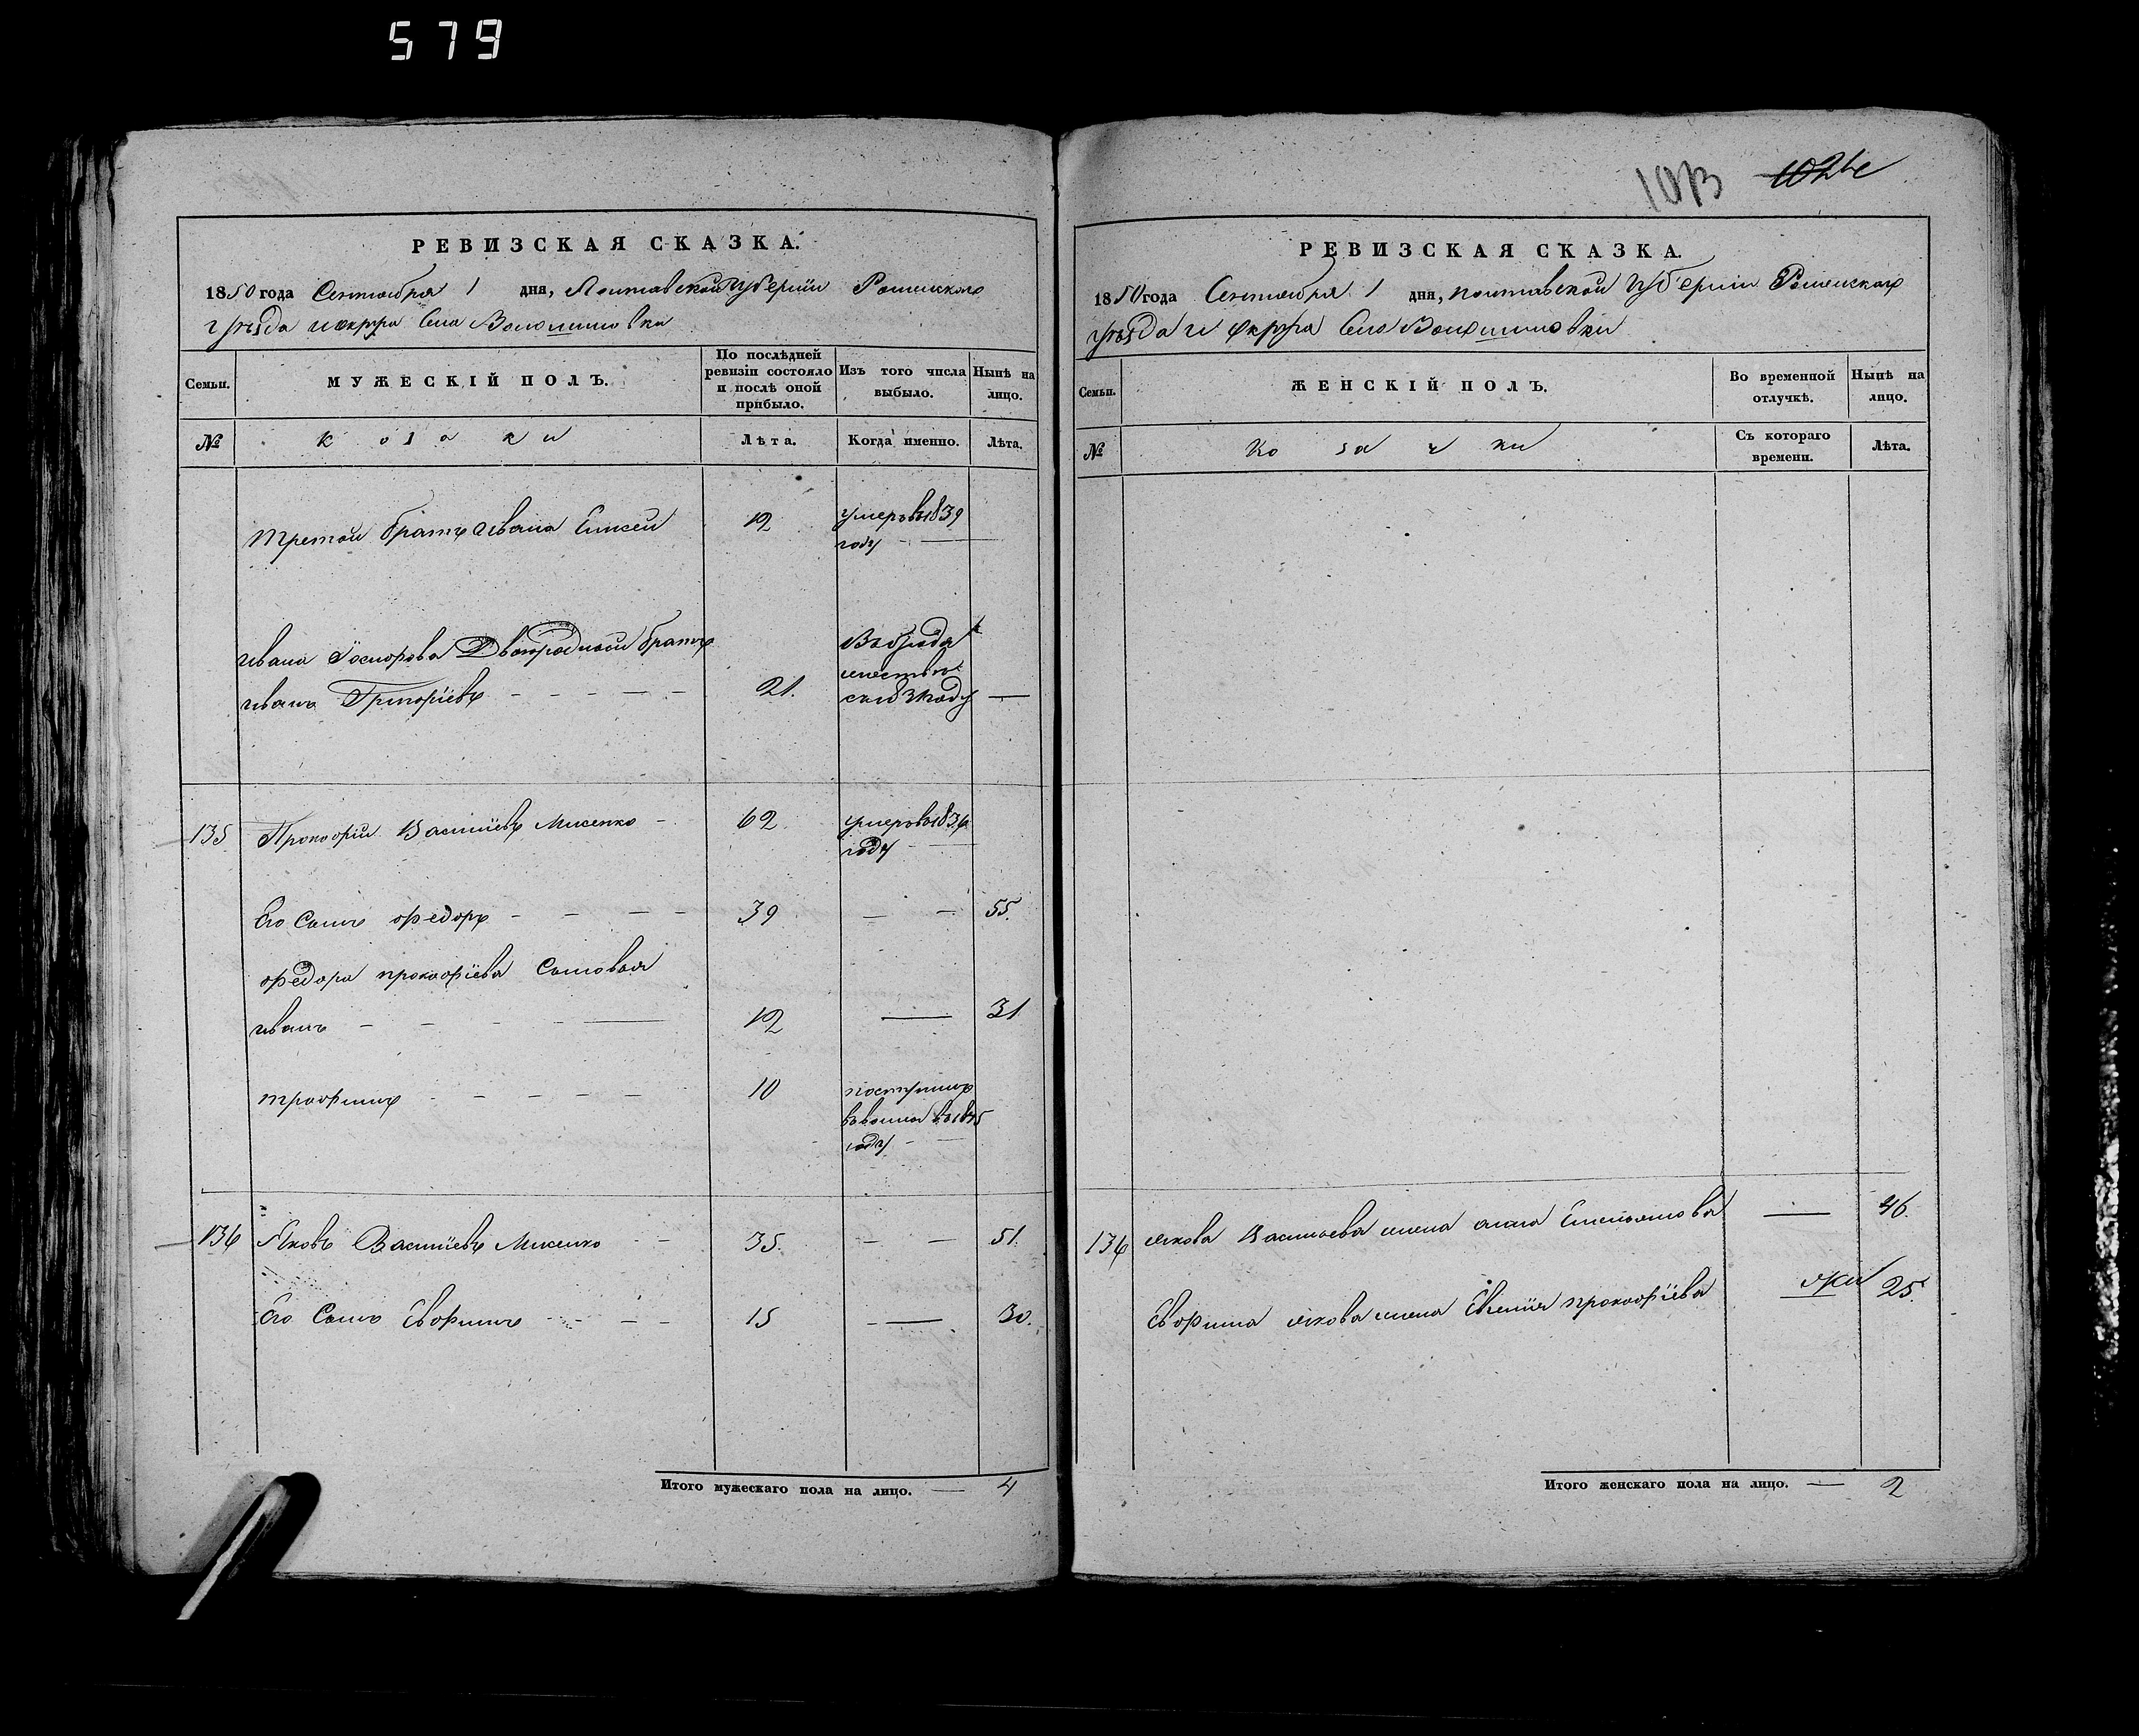 579
1013
РЕВИЗСКАЯ СКАЗКА.
1850 года Сентября 1 дня, Полтавской Губернии Роменского
уезда и округа Села Волошиновки
Семьи.
МУЖЕСКІЙ ПОЛЪ.
По послѣдней ревизіи состояло и послѣ оной прибыло.
Изъ того числа выбыло.
Нынѣ на лицо.
№
козаки
Лѣта.
Когда именно.
Лѣта.
Третой братъ Ивана Елисей 12 умеръ въ 1839
году
Ивана Двоюродной братъ
Иванъ Григоріевъ 21.
135 Прокофій Василіевъ Мисенко 62 умеръ въ 1836
году
Его Сынъ Федоръ 39 55.
Федора Прокофіева Сыновья
Иванъ 12 31
Трофимъ 10 поступилъ
въ 1845
году
136 Яковъ Василіевъ Мисенко 35. 51.
Его Сынъ Евфимъ 15 30.
Итого мужескаго пола на лицо. 4
РЕВИЗСКАЯ СКАЗКА.
1850 года Сентября 1 дня, Полтавской Губерніи Роменского
уезда и округа Села Волошиновки
Семьи.
ЖЕНСКІЙ ПОЛЪ.
Во временной отлучкѣ.
Нынѣ на лицо.
№
козачки
Съ котораго времени.
Лѣта.
136 Якова Васильева жена Анна Емельянова 46.
Евфима Якова жена Евгенія Прокофіева 25.
Итого женскаго пола на лицо. 2